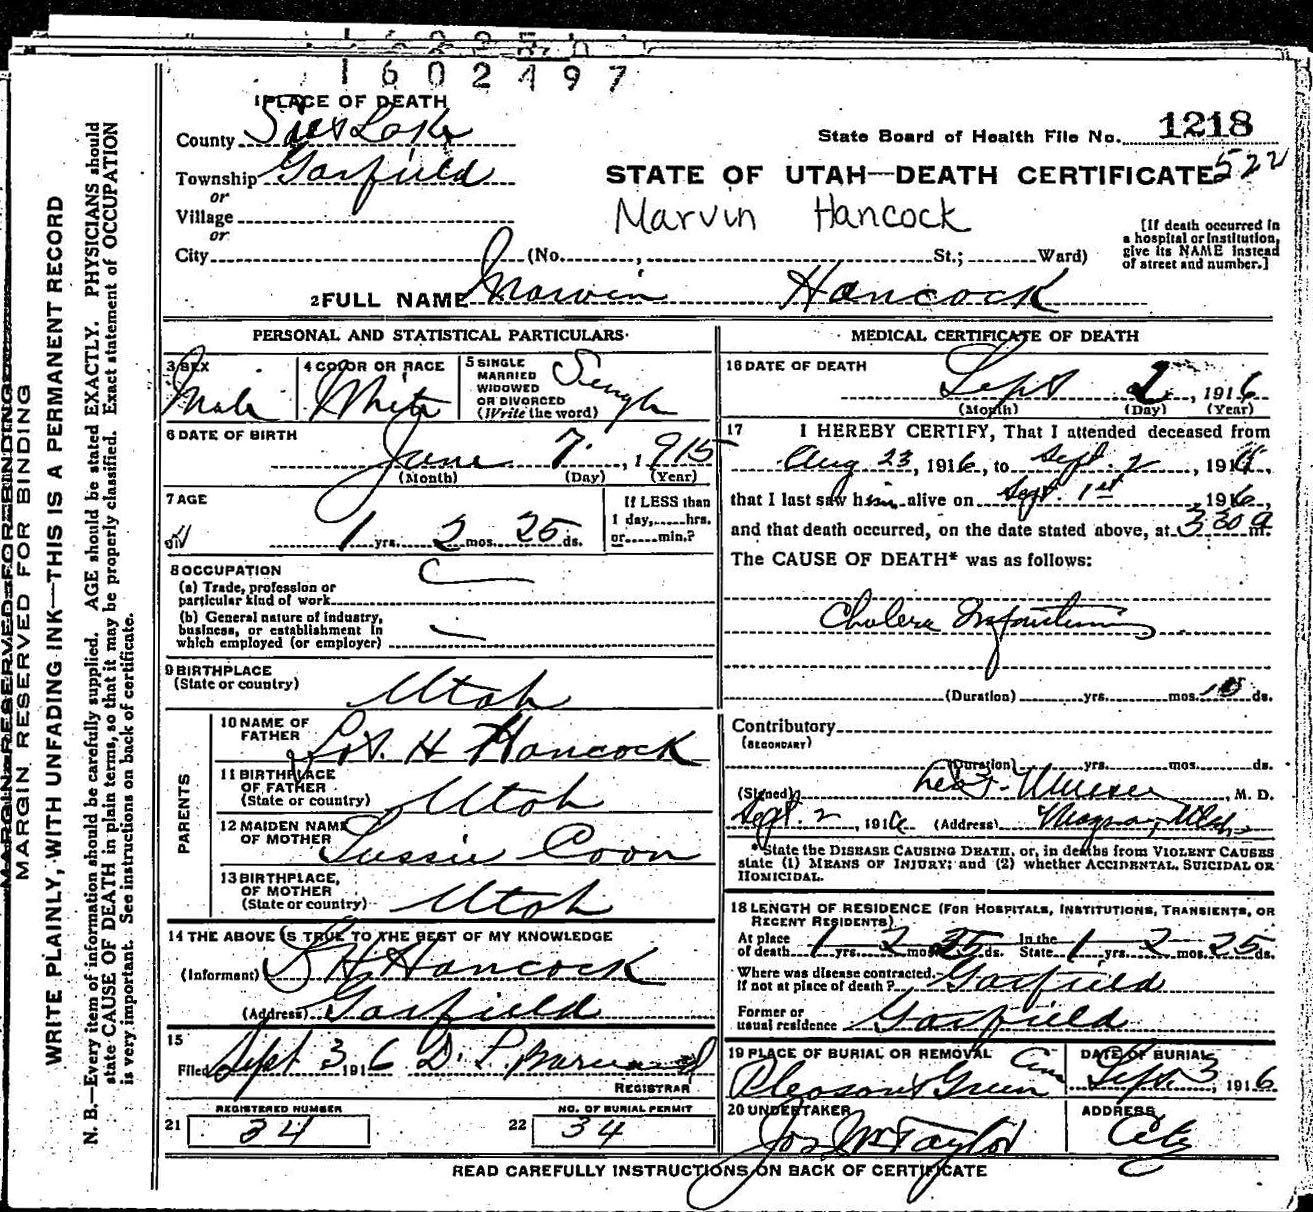 1602497
1 PLACE OF DEATH
County Salt Lake
State Board of Health File No. 1218
Township Garfield
STATE OF UTAH—DEATH CERTIFICATE 522
or
Village
Marvin Hancock
or
City (No. , St.; Ward)
[If death occurred in
a hospital or institution,
give its NAME instead
of street and number.]
2 FULL NAME Marvin Hancock
PERSONAL AND STATISTICAL PARTICULARS
3 SEX
Male
4 COLOR OR RACE
White
5 SINGLE
MARRIED
WIDOWED
OR DIVORCED
(Write the word)
Single
6 DATE OF BIRTH
June 7, 1915
(Month) (Day) (Year)
7 AGE
1 yrs. 2 mos. 25 ds.
If LESS than
1 day,......hrs.
or......min.?
8 OCCUPATION
(a) Trade, profession or
particular kind of work
(b) General nature of industry,
business, or establishment in
which employed (or employer)
9 BIRTHPLACE
(State or country)
Utah
PARENTS
10 NAME OF
FATHER
H Hancock
11 BIRTHPLACE
OF FATHER
(State or country)
Utah
12 MAIDEN NAME
OF MOTHER
Lussie Coon
13 BIRTHPLACE,
OF MOTHER
(State or country)
Utah
14 THE ABOVE IS TRUE TO THE BEST OF MY KNOWLEDGE
(Informant) L H. Hancock
(Address) Garfield
15
Filed Sept 3 1916 D. L. Barnard
REGISTRAR
REGISTERED NUMBER
21 34
NO. OF BURIAL PERMIT
22 34
MEDICAL CERTIFICATE OF DEATH
16 DATE OF DEATH
Sept 2, 1916
(Month) (Day) (Year)
17 I HEREBY CERTIFY, That I attended deceased from
Aug 23, 1916, to Sept. 2, 1916,
that I last saw him alive on Sept. 1st 1916
and that death occurred, on the date stated above, at 3 30 a m.
The CAUSE OF DEATH* was as follows:
Cholera Infantum
(Duration) yrs. mos. 10 ds.
Contributory
(SECONDARY)
(Duration) yrs. mos. ds.
(Signed) , M. D.
Sept. 2, 1916 (Address) Magna, Utah
*State the DISEASE CAUSING DEATH, or, in deaths from VIOLENT CAUSES
state (1) MEANS OF INJURY; and (2) whether ACCIDENTAL, SUICIDAL OR
HOMICIDAL.
18 LENGTH OF RESIDENCE (FOR HOSPITALS, INSTITUTIONS, TRANSIENTS, OR
RECENT RESIDENTS)
At place
of death 1 yrs. 2 mos. 25 ds. In the
State 1 yrs. 2 mos. 25 ds.
Where was disease contracted.
If not at place of death? Garfield
Former or
usual residence Garfield
19 PLACE OF BURIAL OR REMOVAL
Pleasant Green Cem
DATE OF BURIAL
Sept 3, 1916
20 UNDERTAKER
Jos Wm Taylor
ADDRESS
City
READ CAREFULLY INSTRUCTIONS ON BACK OF CERTIFICATE
MARGIN RESERVED FOR BINDING
MARGIN RESERVED FOR BINDING
WRITE PLAINLY, WITH UNFADING INK—THIS IS A PERMANENT RECORD
N. B.—Every item of information should be carefully supplied. AGE should be stated EXACTLY. PHYSICIANS should
state CAUSE OF DEATH in plain terms, so that it may be properly classified. Exact statement of OCCUPATION
is very important. See instructions on back of certificate.